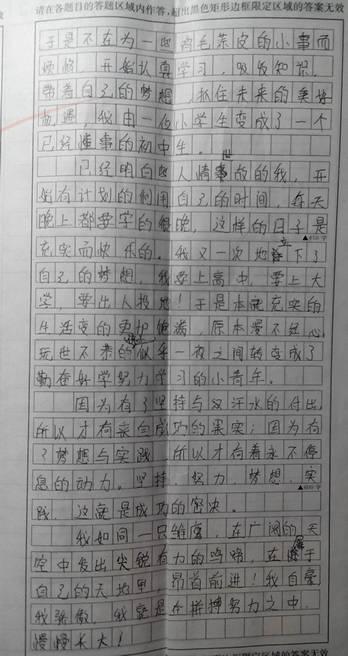 请在各题目的答题区域内作答，超出黑色矩形边框限定区域的答案无效
于是不在为一些鸡毛蒜皮的小事而
烦恼，开始认真学习，吸收知识，
带着自己的梦想，抓住未来的美好
机遇，我由一位小学生变成了一个
已经懂事的初中生。
已经明白些人情世故的我，开
始有计划的利用自己的时间，每天
晚上都要学的很晚，这样的日子是
充实而快乐的。我又一次地立下了
自己的梦想，我要上高中，要上大
学，要出人投地！于是本就充实的
生活变的更加饱满，原本爱不在心，
玩世不恭的似乎一夜之间转变成了
勤奋好学努力学习的小青年。
因为有了坚持与汗水的付出，
所以才有亲自成功的果实；因为有
了梦想与实践，所以才有着永不停
息的动力。坚持，努力，梦想，实
践，这就是成功的密决。
我如同一只雏鹰，在广阔的天
空中发出尖锐有力的鸣啼，在属于
自己的天地里，昂首前进！我自豪
我骄傲，我就是在拼搏努力之中，
慢慢长大！